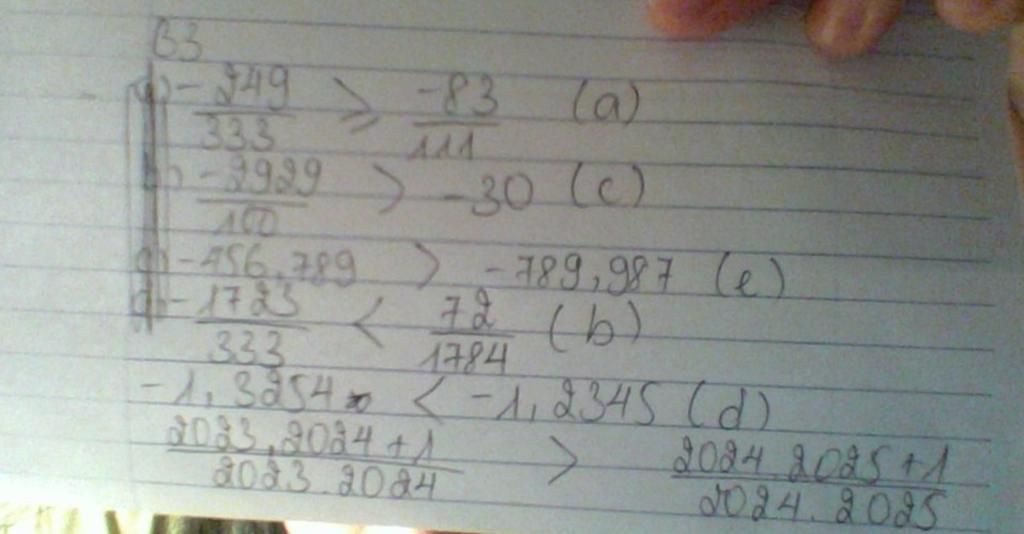 B3
-249/333 ≥ -83/111 (a)
-2929/100 > -30 (c)
-456,789 > -789,987 (e)
-1723/333 < 72/1784 (b)
-1,3254 < -1,2345 (d)
2023.2024+1/2023.2024 > 2024.2025+1/2024.2025